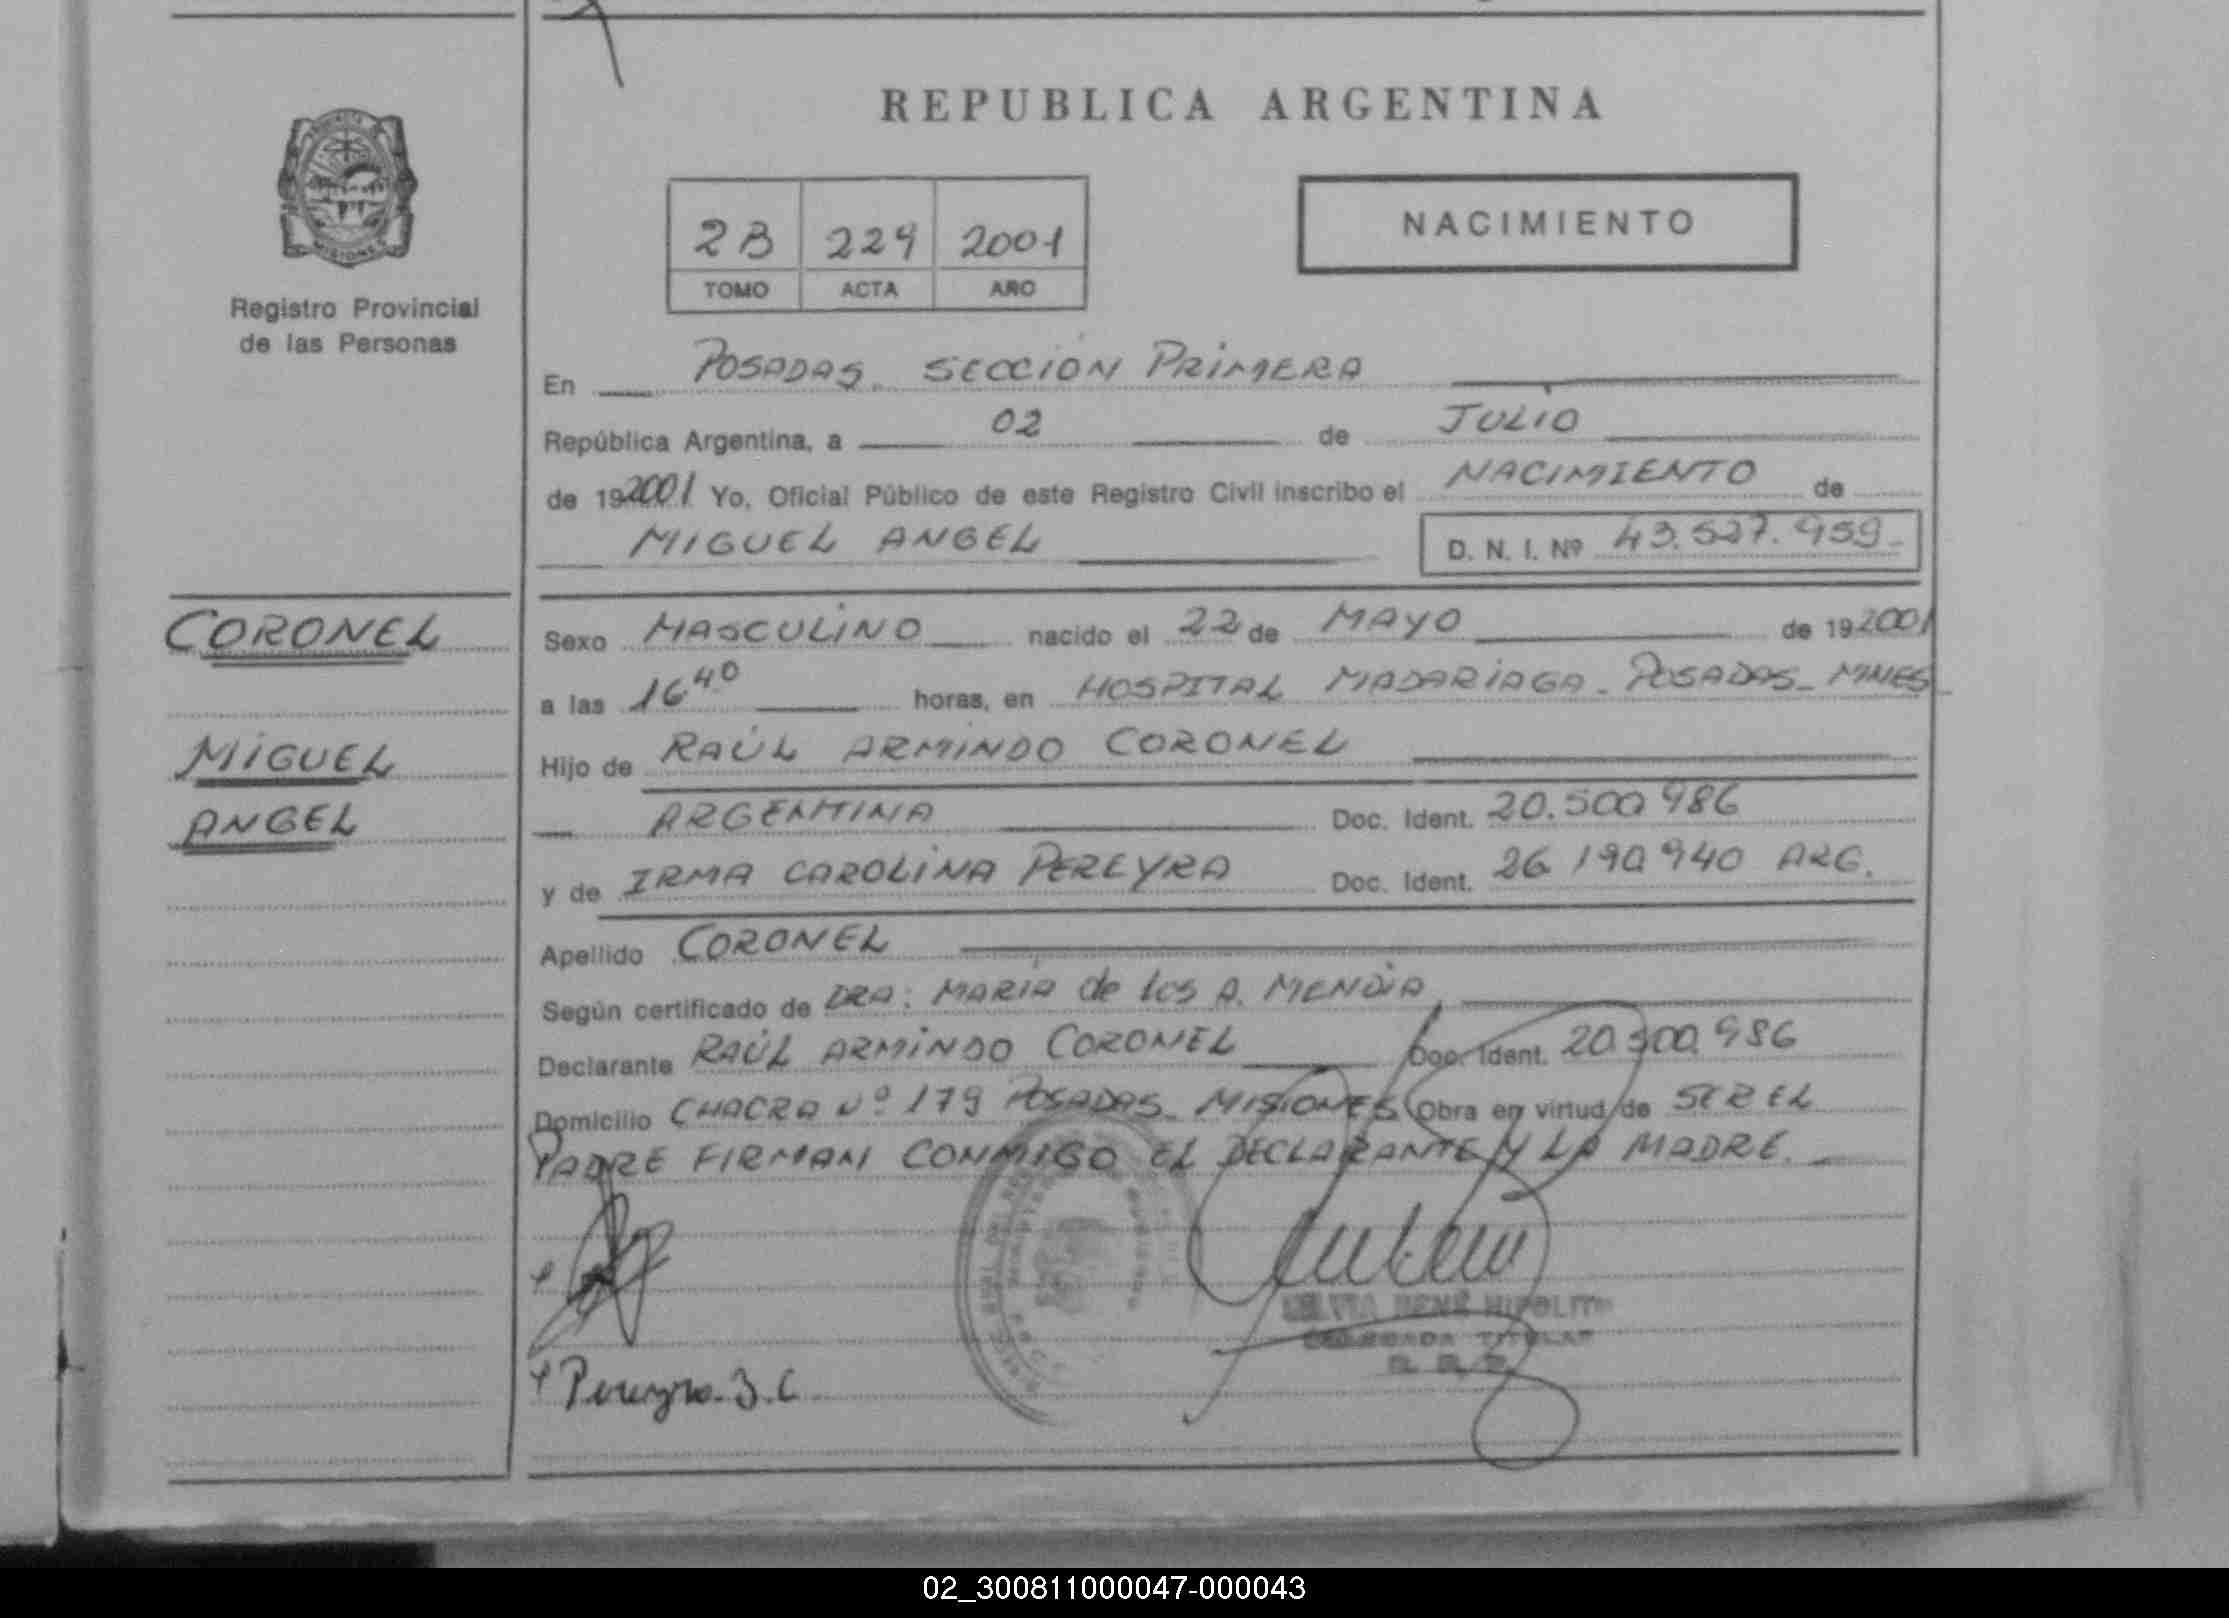 REPUBLICA ARGENTINA
MISIONES
Registro Provincial
de las Personas
2B 229 2001
TOMO ACTA AÑO
NACIMIENTO
En POSADAS. SECCIÓN PRIMERA
República Argentina, a 02 de JULIO
de 192001 Yo, Oficial Público de este Registro Civil inscribo el NACIMIENTO de
MIGUEL ANGEL D. N. I. Nº 43.527.959
CORONEL
MIGUEL
ANGEL
Sexo MASCULINO nacido el 22 de MAYO de 192001
a las 16 40 horas, en HOSPITAL MADARIAGA - POSADAS - MNES
Hijo de RAÚL ARMINDO CORONEL
ARGENTINA Doc. Ident. 20.500.986
y de IRMA CAROLINA PEREYRA Doc. Ident. 26.190.940 ARG.
Apellido CORONEL
Según certificado de DRA: MARIA de los A. MENDIA
Declarante RAÚL ARMINDO CORONEL Doc. Ident. 20.500.986
Domicilio CHACRA Nº 179 POSADAS - MISIONES Obra en virtud de SER EL
PADRE FIRMAN CONMIGO EL DECLARANTE Y LA MADRE.
RENÉ HIPOLITO
DELEGADA TITULAR
Pereyra. I. C
02_300811000047-000043